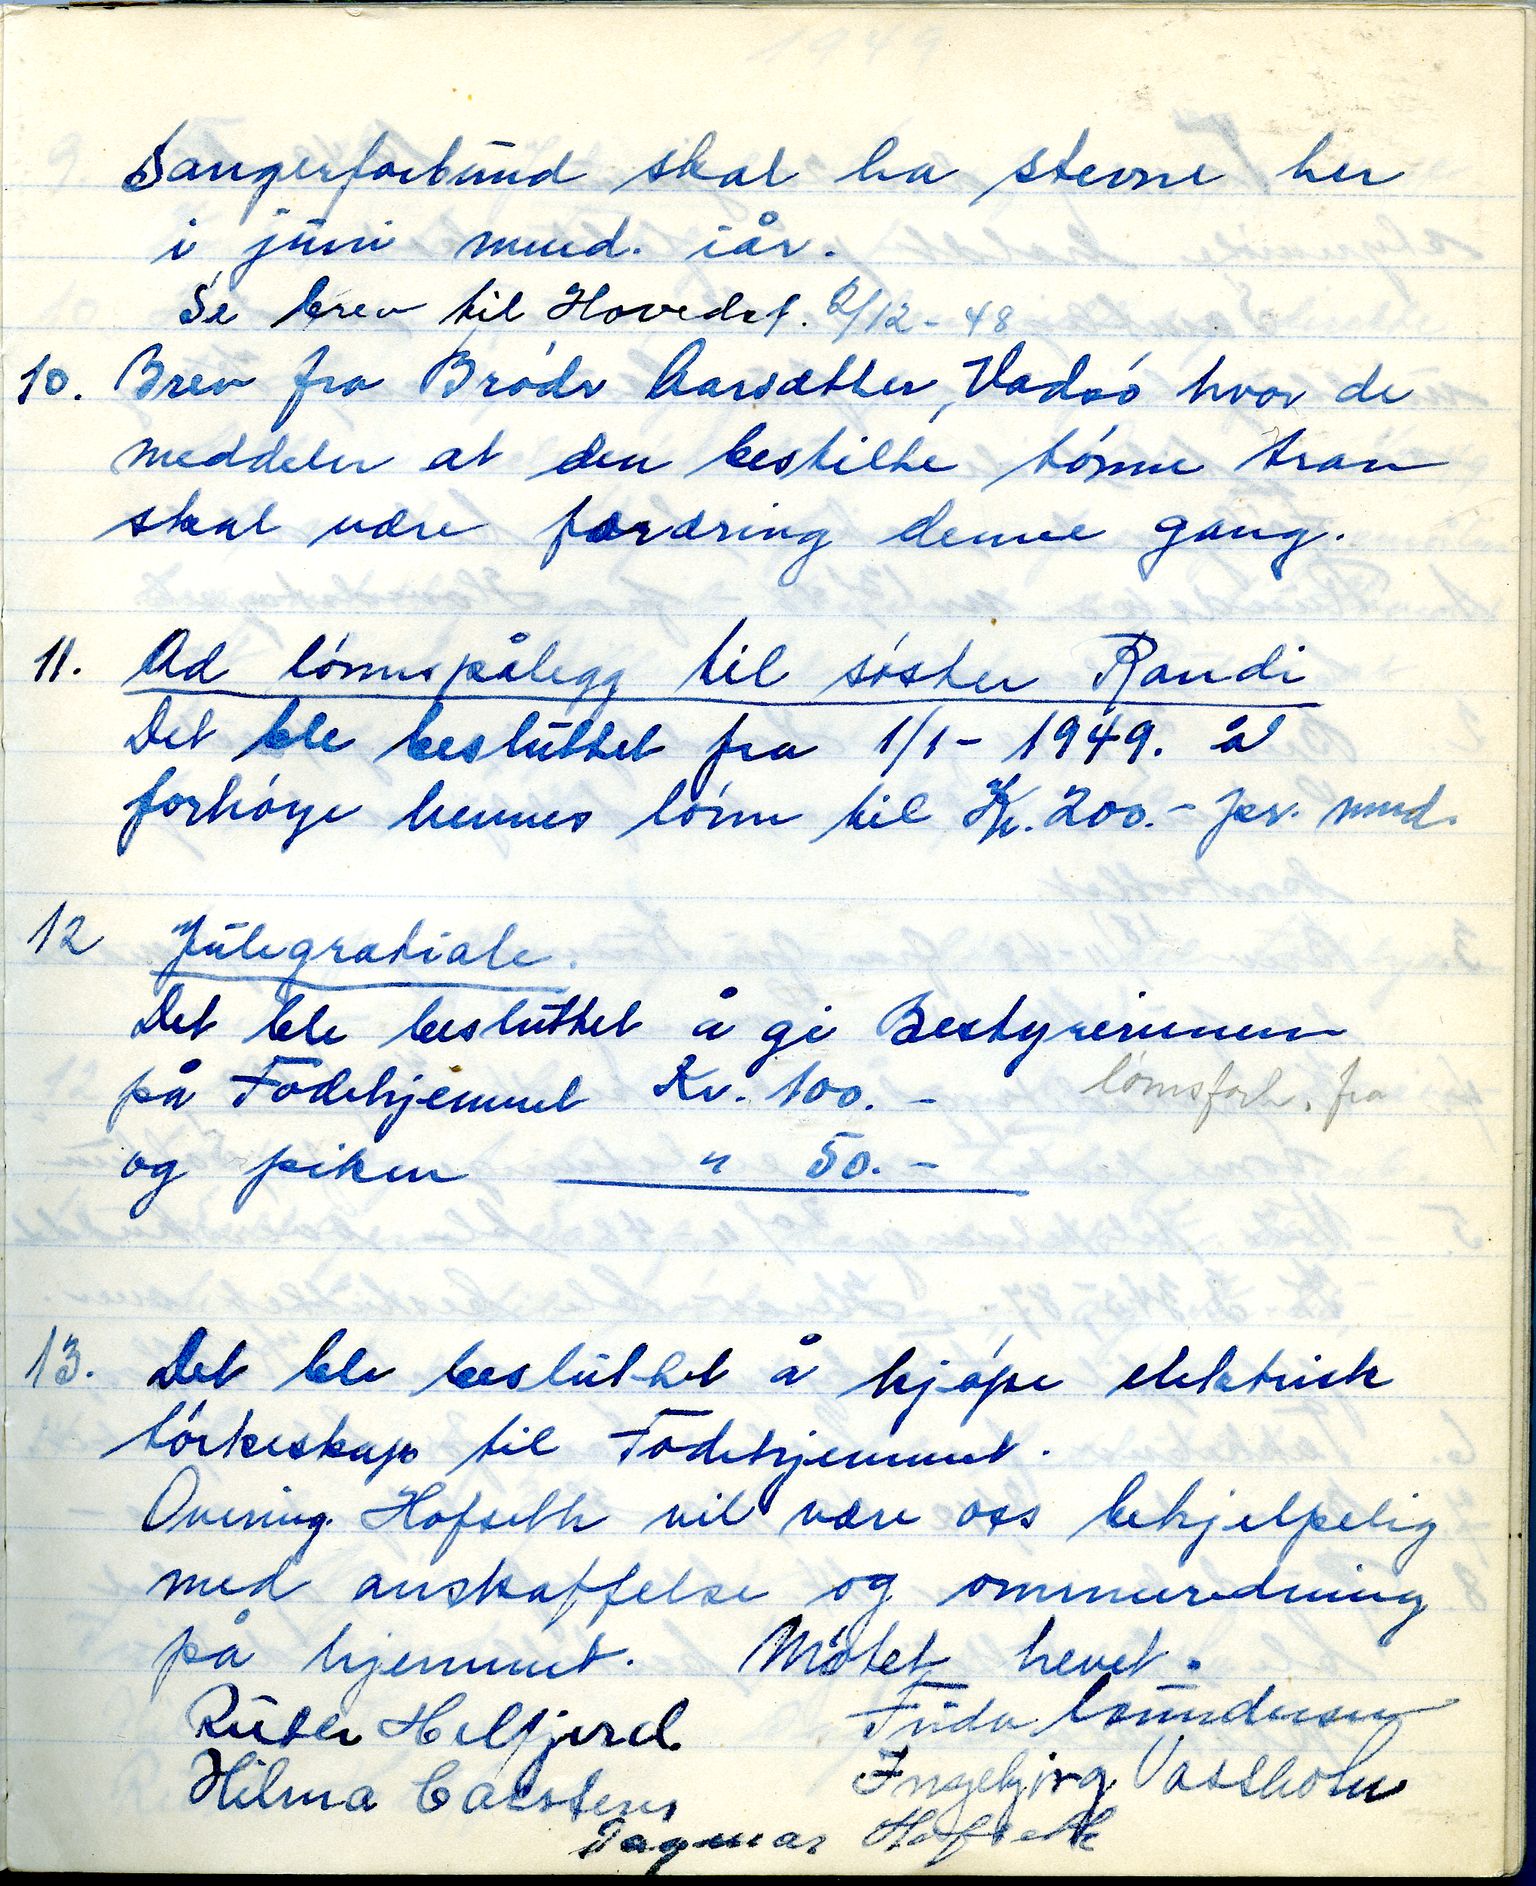 Sangerforbund skal ha stevne her
i juni mnd. iår.
Se brev til Hovedst. 2/12-48
10. Brev fra Brødr Aarsæther, Vadsø hvor de
meddeler at den bestilte tønne tran
skal være foræring denne gang.
11. Ad lønnspålegg til søster Randi
Det ble besluttet fra 1/1-1949. å
forhøye hennes lønn til Kr. 200.- pr. mnd.
12 Julegratiale.
Det ble besluttet å gi Bestyrerinnen
på Fødehjemmet Kr. 100.-
lønnsforh. fra
og piken " 50.-
13. Det ble besluttet å kjøpe elektrisk
tørkeskap til Fødehjemmet.
Overing. Hofseth vil være oss behjelpelig
med anskaffelse og ommuredning
på hjemmet. Møtet hevet.
Ruth Helfjord Frida
Hilma Carstens Ingebjørg Vassholm
Dagmar Hofseth